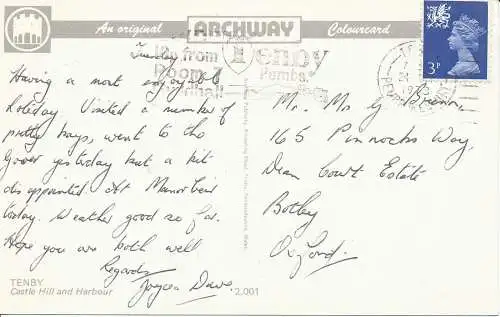 An original ARCHWAY Colourcard
Tuesday
Tenby
Pembs.
3P
Having a most enjoyable
holiday. Visited a number of
pretty bays, went to the
Gower yesterday but a bit
disappointed. At Manorbeir
today. Weather good so far.
Hope you are both well
Regards
Joyce & Dave
Mr. Mrs G Brown,
165 Pinnocks Way,
Dean Court Estate
Botley
Oxford.
TENBY
Castle Hill and Harbour
2,001